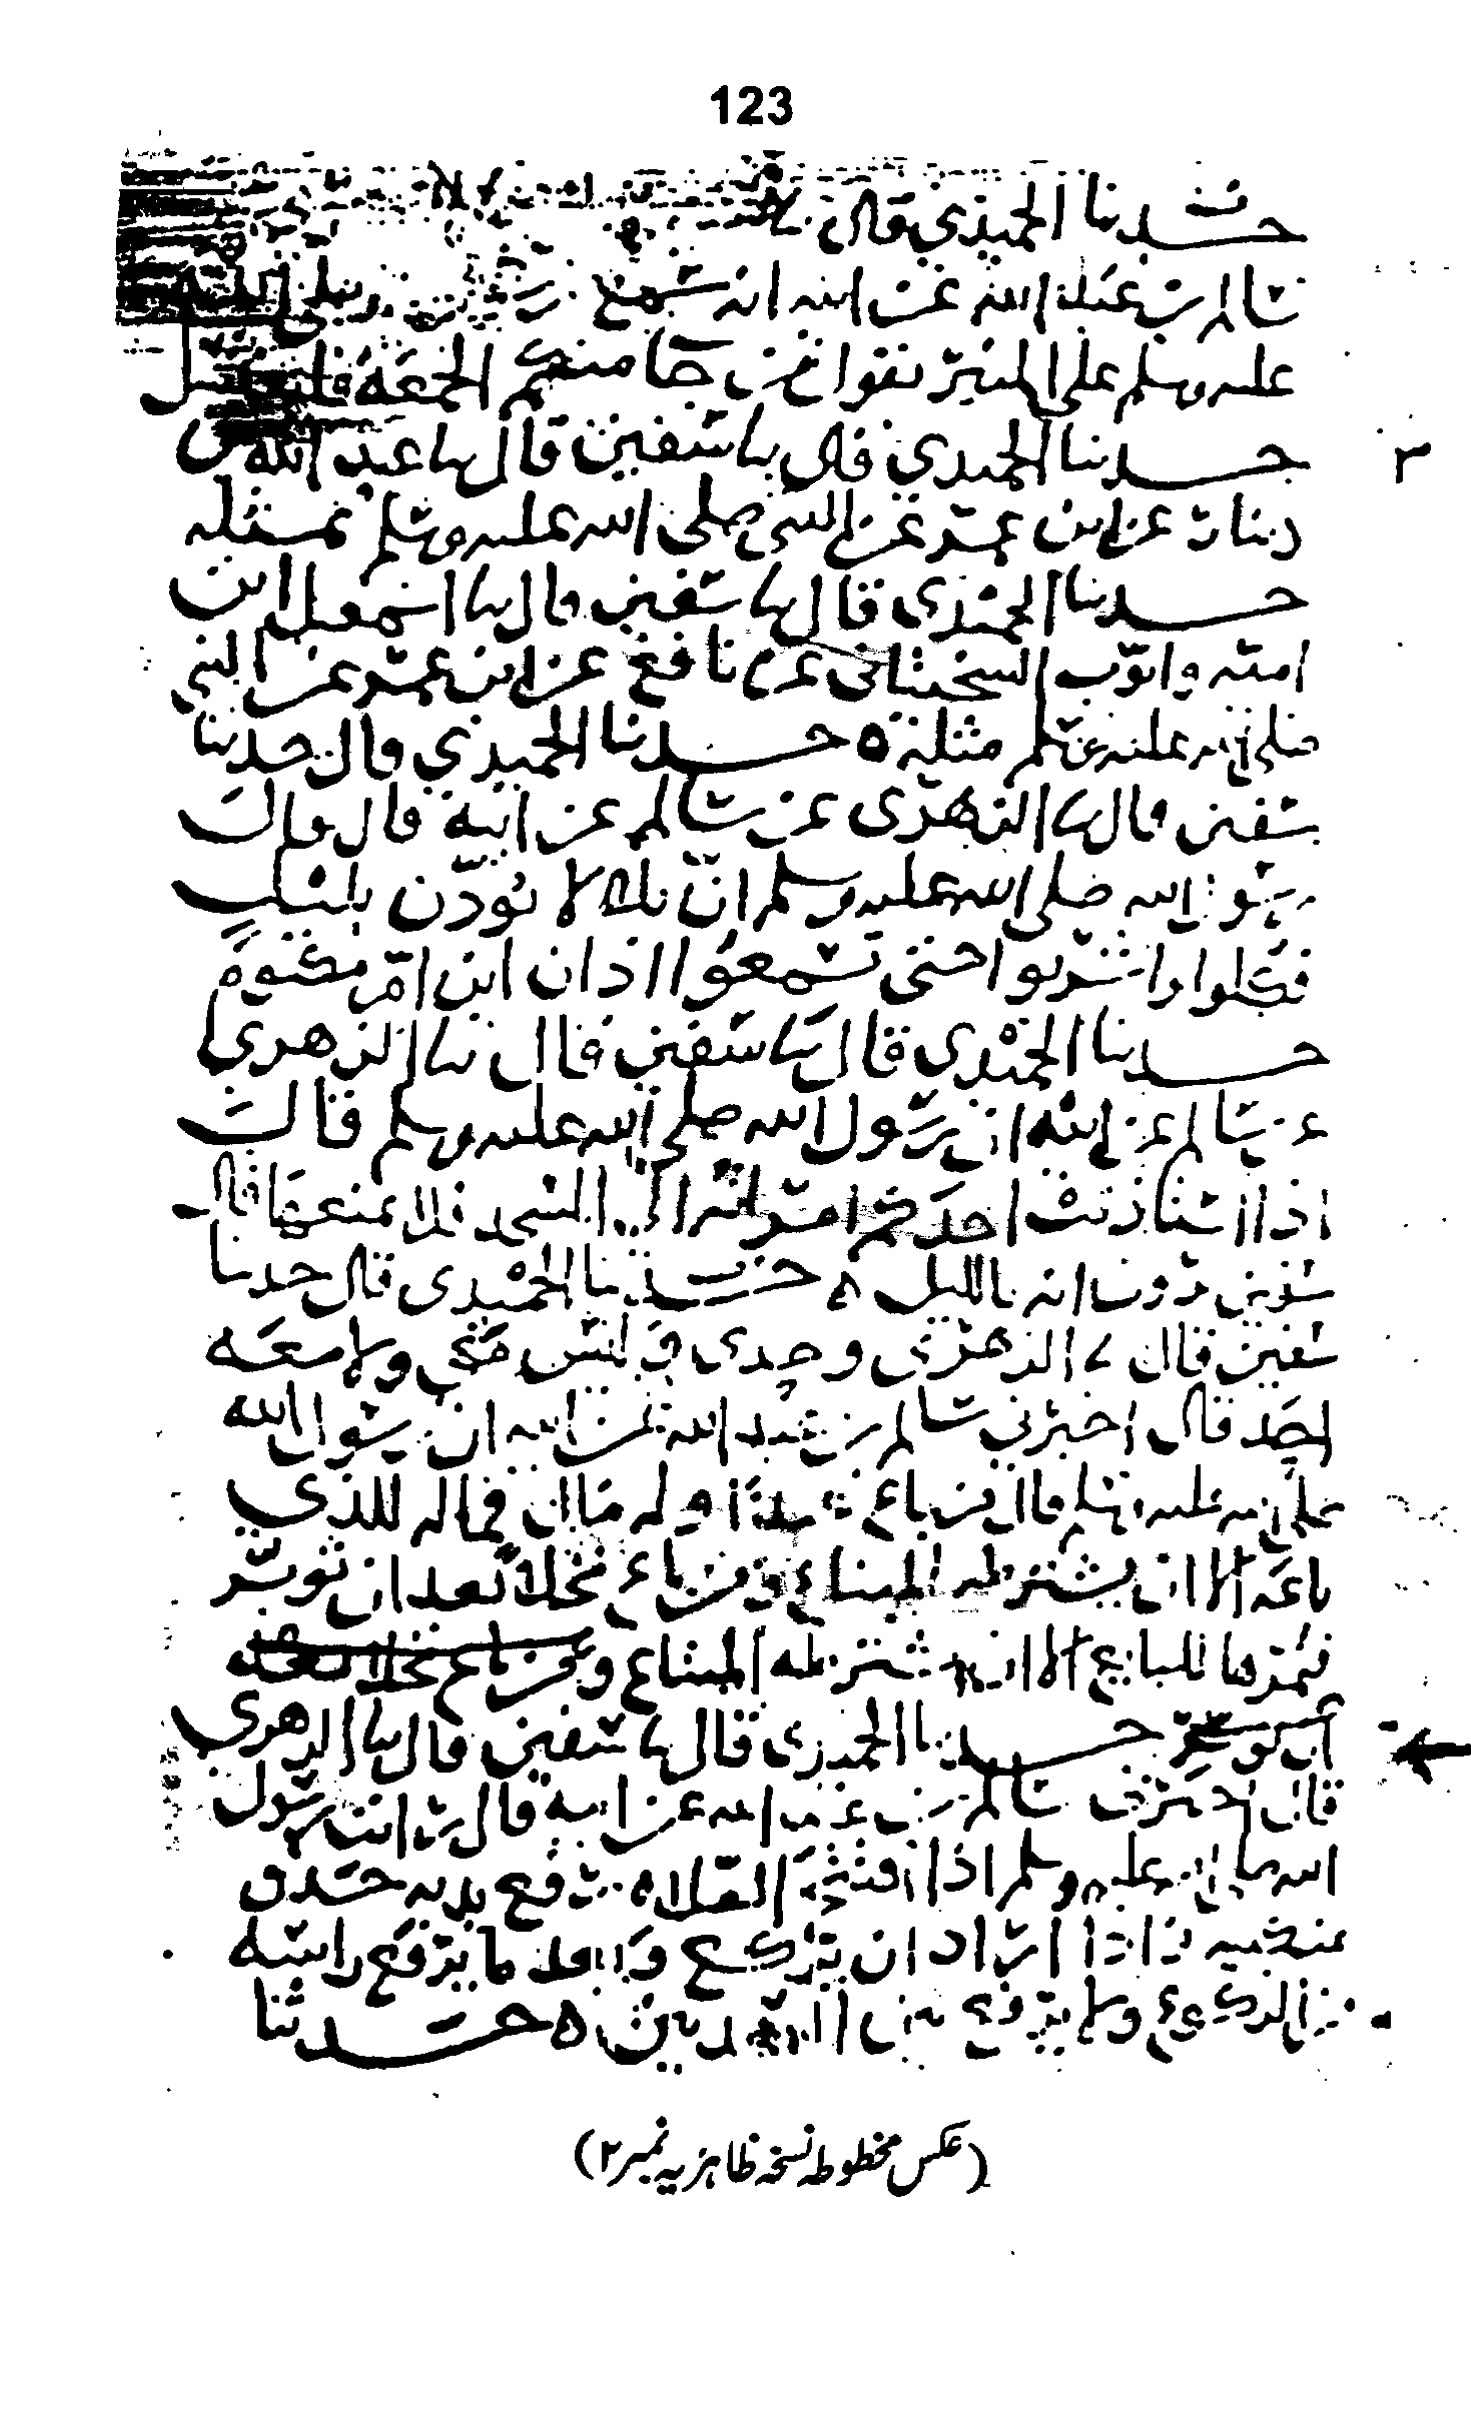 123
حدثنا الحميدي قال
سالم بن عبد الله عن ابيه انه سمع صلى الله
عليه وسلم على المنبر يقول من جا منكم الجمعة فليغتسل
٣
حدثنا الحميدي قال ثنا سفين قال ثنا عبد الله بن
دينار عن ابن عمر عن النبي صلى الله عليه وسلم بمثله
حدثنا الحميدي قال ثنا سفين قال ثنا اسمعيل ابن
امية وايوب السختياني عن نافع عن ابن عمر عن النبي
صلى الله عليه وسلم مثله ٥ حدثنا الحميدي قال حدثنا
سفين قال ثنا الزهري عن سالم عن ابيه قال قال
رسول الله صلى الله عليه وسلم ان بلالا يؤذن بليل
فكلوا واشربوا حتى تسمعوا اذان ابن ام مكتوم
حدثنا الحميدي قال ثنا سفين قال ثنا الزهري
عن سالم عن ابيه ان رسول الله صلى الله عليه وسلم قال
اذا استاذنت احدكم امراته الى المسجد فلا يمنعها قال
سفين يرون انه بالليل ٥ حدثنا الحميدي قال حدثنا
سفين قال ثنا الزهري وحدي وليس معي ولا معه
احد قال اخبرني سالم بن عبد الله عن ابيه ان رسول الله
صلى الله عليه وسلم قال من باع عبدا وله مال فماله للذي
باعه الا ان يشترطه المبتاع ومن باع نخلا بعد ان توبر
فثمرها للبايع الا ان يشترطه المبتاع ومن باع نخلا بعد
ان توبر حدثنا الحميدي قال ثنا سفين قال ثنا الزهري
قال اخبرني سالم بن عبد الله عن ابيه قال رايت رسول
الله صلى الله عليه وسلم اذا افتتح الصلاه رفع يديه حذو
منكبيه واذا اراد ان يركع وبعد ما يرفع راسه
من الركوع ولا يرفع بين السجدتين ٥ حدثنا
(عکس مخطوطہ نسخہ ظاہریہ نمبر ۲)